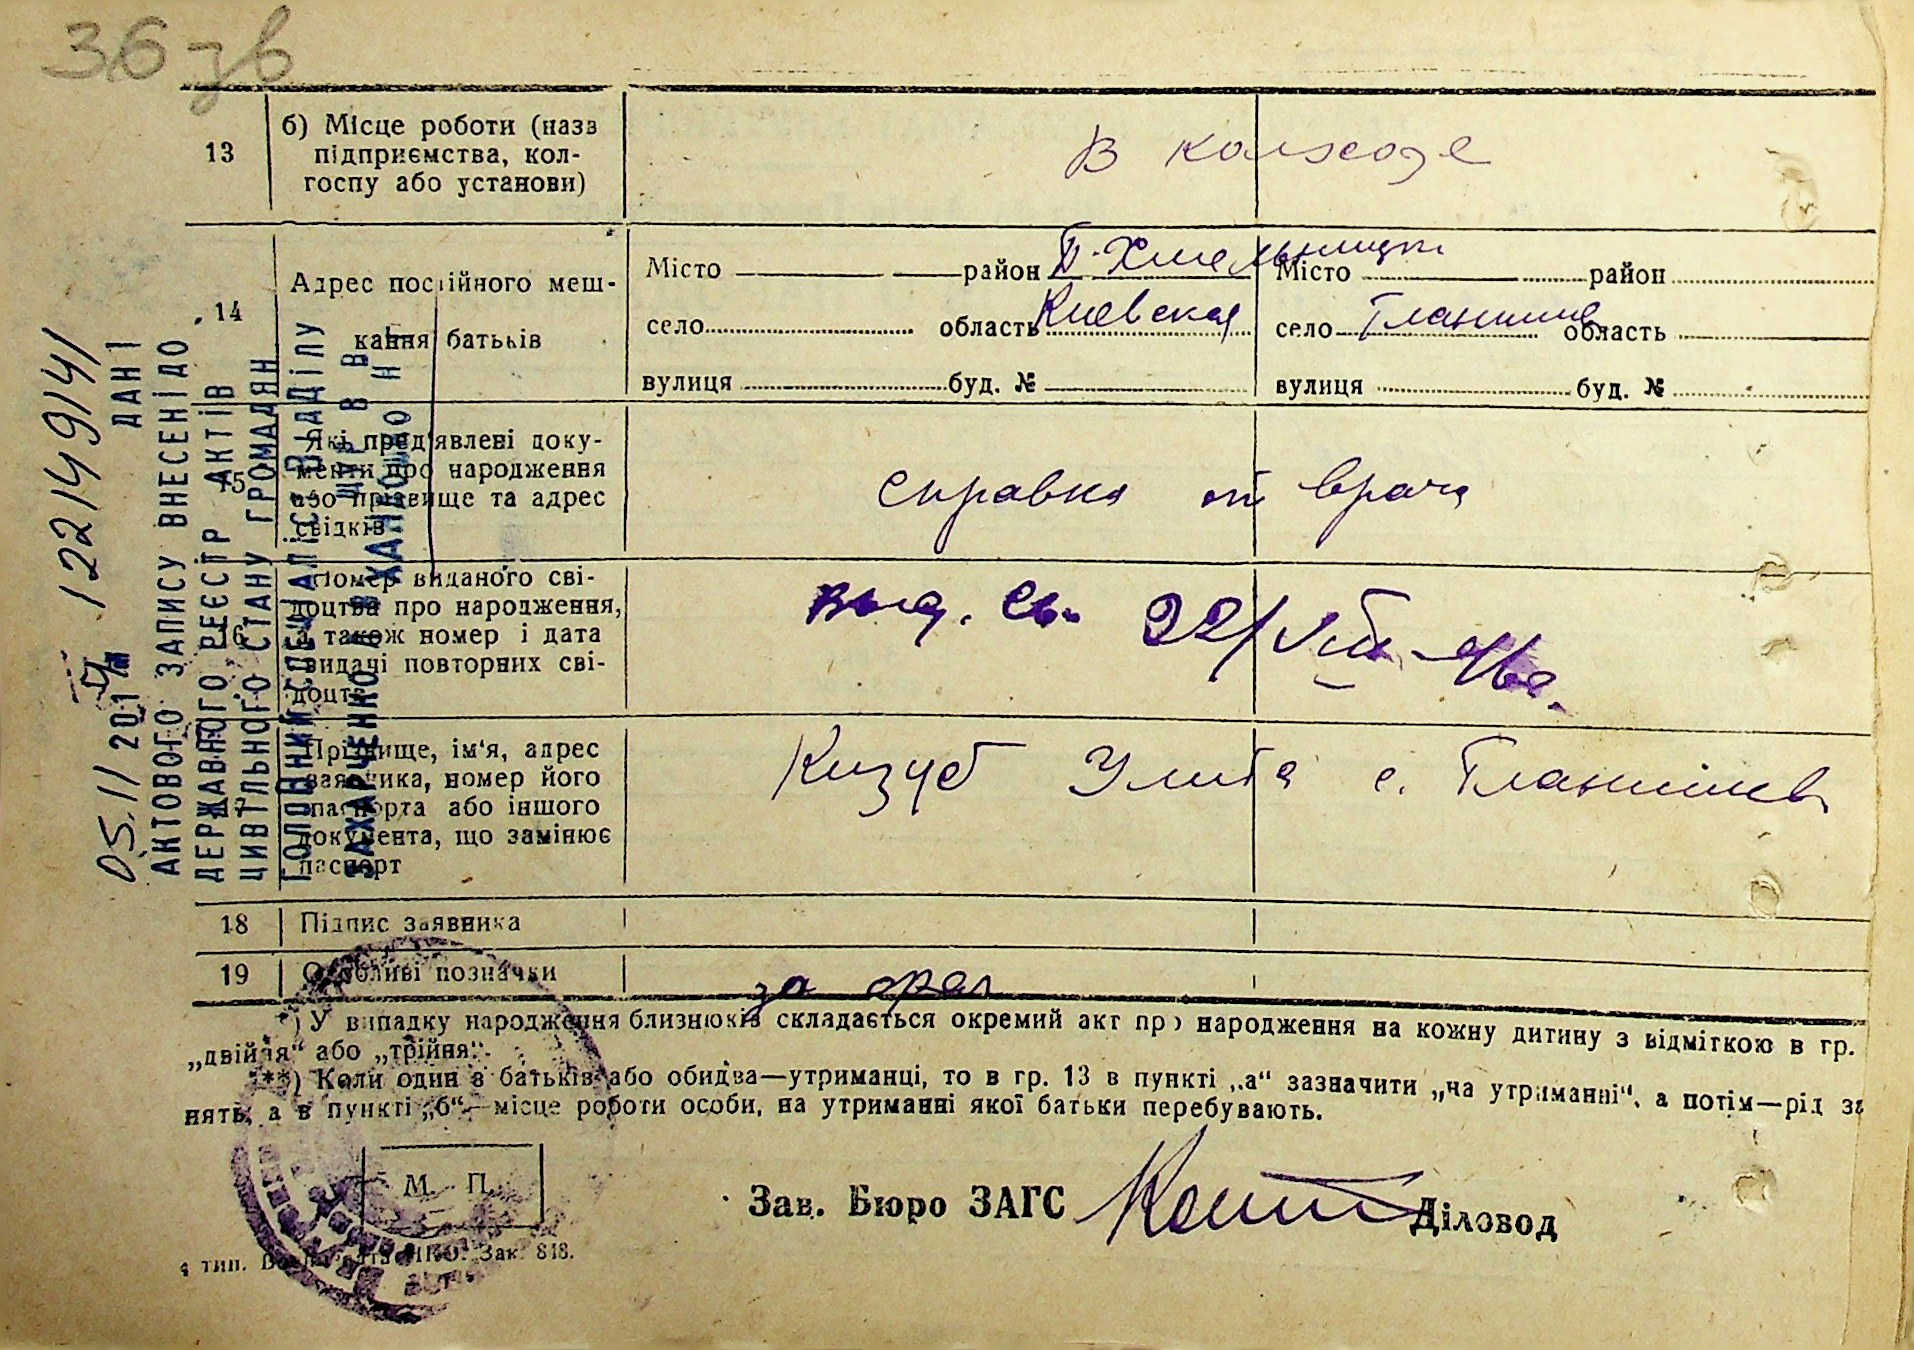 36 зв
13
б) Місце роботи (назв
підприємства, кол-
госпу або установи)
В колхозе
14
Адрес постійного меш-
кання батьків
Місто район Б-Хмельницки
село область Киевская
вулиця буд. №
Місто район
село Гланишев область
вулиця буд. №
15
Які пред'явлені доку-
менти про народження
або прізвище та адрес
свідків
справка от врача
16
Номер виданого сві-
доцтва про народження,
а також номер і дата
видачі повторних сві-
доцтв
выд. св. 22/VIII-46г.
17
Прізвище, ім'я, адрес
заявника, номер його
паспорта або іншого
документа, що замінює
паспорт
Кизуб Улита с. Гланишев
18
Підпис заявника
19
Особливі позначки
*) У випадку народження близнюків складається окремий акт про народження на кожну дитину з відміткою в гр.
„двійня“ або „трійня“.
**) Коли один з батьків або обидва—утриманці, то в гр. 13 в пункті „а“ зазначити „на утриманні“, а потім—рід за
нять, а в пункті „б“—місце роботи особи, на утриманні якої батьки перебувають.
М. П.
Зав. Бюро ЗАГС
Діловод
Зак. 818.
122149141
ДАНІ
05.11 201
АКТОВОГО ЗАПИСУ ВНЕСЕНІ ДО
ДЕРЖАВНОГО РЕЄСТР АКТІВ
ЦИВІЛЬНОГО СТАНУ ГРОМАДЯН
ГОЛОВНИЙ СПЕЦІАЛІСТ ВІДДІЛУ
ЗАХАРЧЕНКО